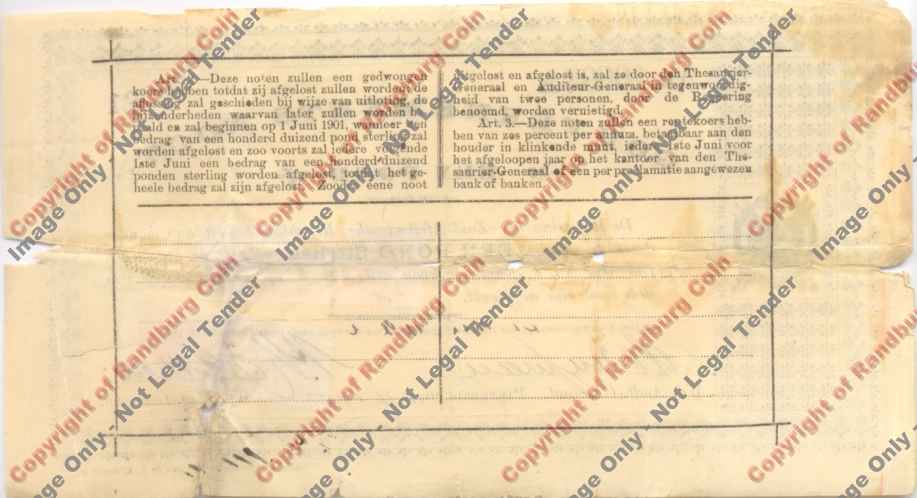 Art. 2.—Deze noten zullen een gedwongen
koers hebben totdat zij afgelost zullen worden, de
aflossing zal geschieden bij wijze van uitloting, de
bijzonderheden waarvan later zullen worden be-
paald en zal beginnen op 1 Juni 1901, wanneer een
bedrag van een honderd duizend pond sterling zal
worden afgelost en zoo voorts zal iedere volgende
1ste Juni een bedrag van een honderd duizend
ponden sterling worden afgelost, totdat het ge-
heele bedrag zal zijn afgelost. Zoodra eene noot
uitgelost en afgelost is, zal ze door den Thesaurier-
Generaal en Auditeur-Generaal in tegenwoordig-
heid van twee personen, door de Regeering
benoemd, worden vernietigd.
Art. 3.—Deze noten zullen een rentekoers heb-
ben van zes percent per annum, betaalbaar aan den
houder in klinkende munt, iedere 1ste Juni voor
het afgeloopen jaar op het kantoor van den The-
saurier-Generaal of een per proklamatie aangewezen
bank of banken.
Copyright of Randburg Coin
Image Only - Not Legal Tender